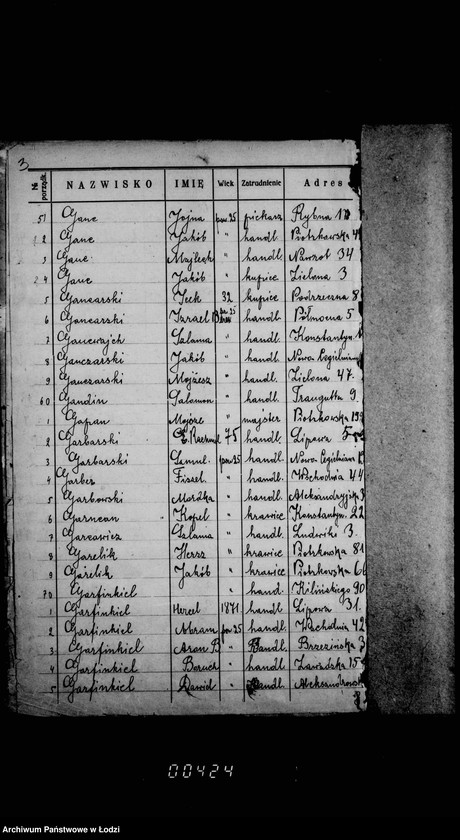 3
№ porządk. NAZWISKO IMIĘ Wiek Zatrudnienie Adres
51 Gane Jojna pow 25 piekarz Rybna
2 Gane Jakób " handl. Piotrkowska
3 Gane " handl. Nawrot 34
4 Gane Jakób " kupiec Zielona 3
5 Gancarski Icek 32 kupiec Podrzeczna 8
6 Gancarski Izrael handl. Północna 5
7 Gancwajch Szlama " handl. Konstantyn.
8 Ganczarski Jakób " handl. Nowo Cegielniana
9 Ganczarski Mojżesz " handel. Zielona 47.
60 Gandin Salomon " handl. Traugutta 9
1 Gapan " majster Piotrkowska
2 Garbarski 75 handl. Lipowa
3 Garbarski Samul. pow 25 handl. Nowo Cegielniana
4 Garber Fiszel " handl. Wschodnia 44
5 Garbowski Mordka " handl. Aleksandryjska
6 Kopel " krawiec Konstantyn. 22
7 Garcowicz Szlama " handl. Ludwiki 3.
8 Garelik Hersz " krawiec Piotrkowska 81
9 Garelik Jakób " krawiec Piotrkowska
70 Garfinkiel " hand. Kilińskiego 90
1 Garfinkiel Herzel 1871 handl Lipowa 31.
2 Garfinkiel Abram pow 25 handl. Wschodnia 42
3 Garfinkiel Aron B " handl. Brzezińska
4 Garfinkiel Boruch " handl. Zawadzka
5 Garfinkiel Dawid " handl. Aleksandrowska
00424
Archiwum Państwowe w Łodzi